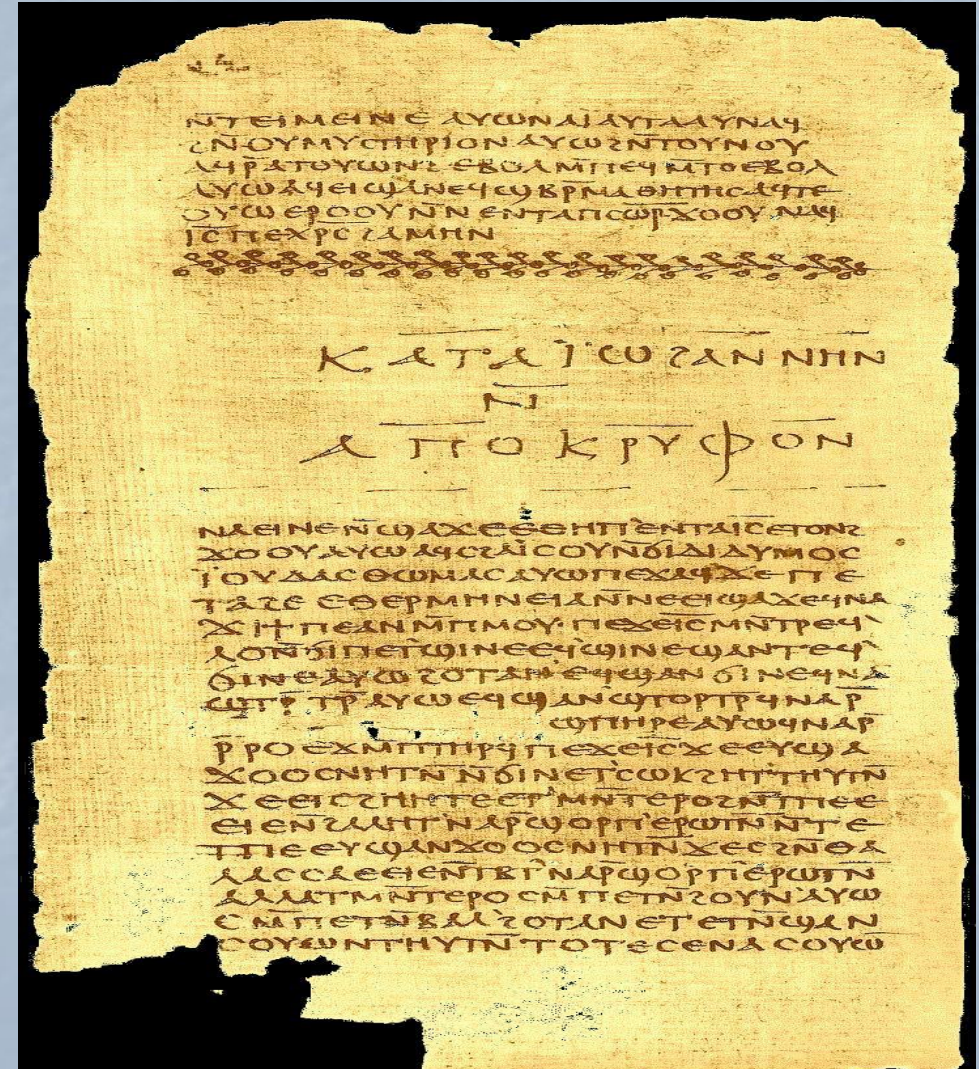 ⲛ̄ⲧⲉⲓⲙⲉⲓⲛⲉ ⲁⲩⲱ ⲛⲁⲓ̈ ⲁⲩⲧⲁⲁⲩ ⲛⲁϥ
ϩⲛ̄ ⲟⲩⲙⲩⲥⲧⲏⲣⲓⲟⲛ ⲁⲩⲱ ϩⲛ̄ ⲧⲟⲩⲛⲟⲩ
ⲁϥⲣ̄ ⲁⲧⲟⲩⲱⲛϩ ⲉⲃⲟⲗ ⲙ̄ⲡⲉϥⲙ̄ⲧⲟ ⲉⲃⲟⲗ
ⲁⲩⲱ ⲁϥⲉⲓ ϣⲁ ⲛⲉϥϣⲃⲣ̄ⲙⲁⲑⲏⲧⲏⲥ ⲁϥⲧⲉ
ⲟⲩⲱ ⲉⲣⲟⲟⲩ ⲛ̄ⲛⲉⲛⲧⲁⲡⲥⲱⲣ ϫⲟⲟⲩ ⲛⲁϥ
ⲓ̄ⲥ̄ ⲡⲉⲭⲣ̄ⲥ̄ ϩⲁⲙⲏⲛ
ⲕⲁⲧⲁ ⲓ̈ⲱϩⲁⲛⲛⲏⲛ
ⲛ̄
ⲁⲡⲟⲕⲣⲩⲫⲟⲛ
ⲛⲁⲉⲓ ⲛⲉ ⲛ̄ϣⲁϫⲉ ⲉⲑⲏⲡ ⲉⲛⲧⲁⲓ̄ⲥ̄ ⲉⲧⲟⲛϩ
ϫⲟⲟⲩ ⲁⲩⲱ ⲁϥⲥϩⲁⲓ̈ⲥⲟⲩ ⲛ̄ϭⲓ ⲇⲓⲇⲩⲙⲟⲥ
ⲓ̈ⲟⲩⲇⲁⲥ ⲑⲱⲙⲁⲥ ⲁⲩⲱ ⲡⲉϫⲁϥ ϫⲉ ⲡⲉ
ⲧⲁϩⲉ ⲉⲑⲉⲣⲙⲏⲛⲉⲓⲁ ⲛ̄ⲛⲉⲉⲓϣⲁϫⲉ ϥⲛⲁ
ϫⲓ ϯⲡⲉ ⲁⲛ ⲙ̄ⲡⲙⲟⲩ ⲡⲉϫⲉ ⲓ̄ⲥ̄ ⲙⲛ̄ⲧⲣⲉϥ
ⲗⲟ ⲛ̄ϭⲓ ⲡⲉⲧϣⲓⲛⲉ ⲉϥϣⲓⲛⲉ ϣⲁⲛⲧⲉϥ
ϭⲓⲛⲉ ⲁⲩⲱ ϩⲟⲧⲁⲛ ⲉϥϣⲁⲛϭⲓⲛⲉ ϥⲛⲁ
ϣⲧⲣ̄ⲧⲣ̄ ⲁⲩⲱ ⲉϥϣⲁⲛϣⲧⲟⲣⲧⲣ̄ ϥⲛⲁⲣ̄
ϣⲡⲏⲣⲉ ⲁⲩⲱ ϥⲛⲁⲣ̄
ⲣ̄ⲣⲟ ⲉϫⲙ̄ ⲡⲧⲏⲣϥ ⲡⲉϫⲉ ⲓ̄ⲥ̄ ϫⲉ ⲉⲩϣⲁ
ϫⲟⲟⲥ ⲛⲏⲧⲛ̄ ⲛ̄ϭⲓ ⲛⲉⲧⲥⲱⲕ ϩⲏⲧ ⲧⲏⲩⲧⲛ̄
ϫⲉ ⲉⲓⲥϩⲏⲏⲧⲉ ⲉⲧⲙⲛ̄ⲧⲉⲣⲟ ϩⲛ̄ ⲧⲡⲉ ⲉ
ⲉⲓⲉ ⲛ̄ϩⲁⲗⲏⲧ ⲛⲁⲣ̄ ϣⲟⲣⲡ ⲉⲣⲱⲧⲛ̄ ⲛ̄ⲧⲉ
ⲧⲡⲉ ⲉⲩϣⲁⲛϫⲟⲟⲥ ⲛⲏⲧⲛ̄ ϫⲉ ⲥϩⲛ̄ ⲑⲁ
ⲗⲁⲥⲥⲁ ⲉⲉⲓⲉ ⲛ̄ⲧⲃⲧ ⲛⲁⲣ̄ ϣⲟⲣⲡ ⲉⲣⲱⲧⲛ̄
ⲁⲗⲗⲁ ⲧⲙⲛ̄ⲧⲉⲣⲟ ⲥⲙ̄ⲡⲉⲧⲛ̄ϩⲟⲩⲛ ⲁⲩⲱ
ⲥⲙ̄ⲡⲉⲧⲛ̄ⲃⲁⲗ ϩⲟⲧⲁⲛ ⲉⲧⲉⲧⲛ̄ϣⲁⲛ
ⲥⲟⲩⲱⲛ ⲧⲏⲩⲧⲛ̄ ⲧⲟⲧⲉ ⲥⲉⲛⲁⲥⲟⲩⲱ